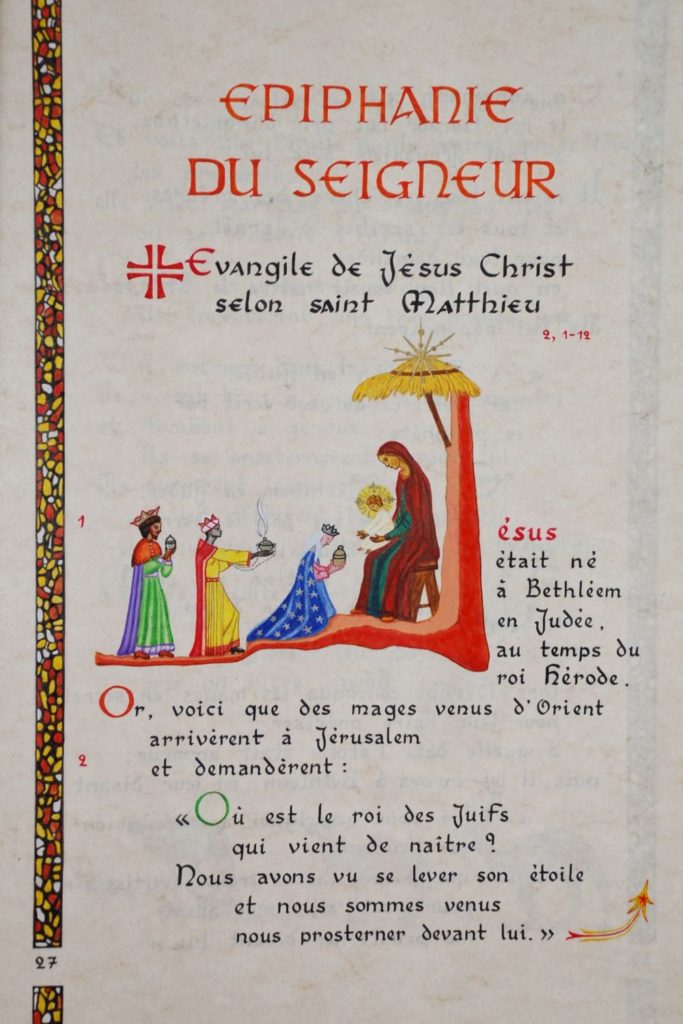 EPIPHANIE
DU SEIGNEUR
Evangile de Jésus Christ
selon saint Matthieu
2, 1-12
1
Jésus
était né
à Bethléem
en Judée,
au temps du
roi Hérode.
Or, voici que des mages venus d'Orient
arrivèrent à Jérusalem
2
et demandèrent :
« Où est le roi des Juifs
qui vient de naître ?
Nous avons vu se lever son étoile
et nous sommes venus
nous prosterner devant lui. »
27